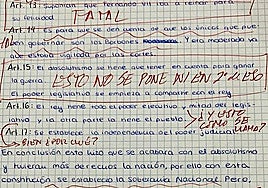 Art. 13: Suponían que Fernando VII iba a reinar para su
felicidad. FATAL
Art. 14: Es para que se den cuenta de que los únicos que pue-
den gobernar son los Borbones. Era moderada ya
que estaba vigilado por las cortes.
Art. 15: El absolutismo se tiene que tener en cuenta para ganar
la guerra. ¿ESTO NO SE PONE NI EN 2º de ESO
el poder legislativo se empieza a compartir con el rey.
Art. 16: El rey tiene todo el poder ejecutivo, mitad del legislat-
ivo, y la otra parte la tiene el pueblo. ¿Y ESTO NO SE
Art. 17: Se establece la independencia del poder judicial. LLAMA?
BIEN ¿POR QUÉ?
En conclusión esto que se acabara con el absolutismo
y hubiera más derechos la nación, por ello con esta
constitución se establece la soberanía Nacional. Pero,